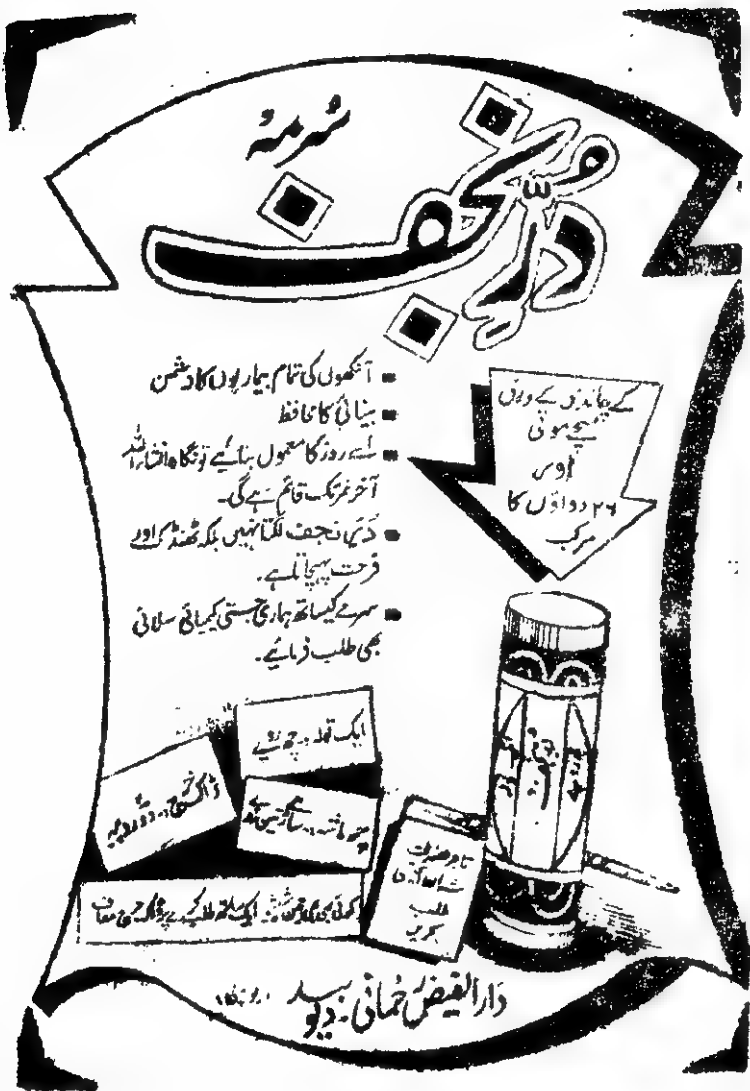 سُرمہ
دُرِّ نجف
آنکھوں کی تمام بیماریوں کا دشمن
بینائی کا محافظ
اسے روز کا معمول بنائیے تو نگاہ انشاءاللہ
آخر عمر تک قائم رہے گی۔
دُرِّ نجف لگتا نہیں بلکہ ٹھنڈک اور
فرحت پہنچاتا ہے۔
سرمے کیساتھ ہماری جستی کیمیائی سلائی
بھی طلب فرمائیے۔
چاندی کے ورق
سچے موتی
اور
۲۶ دواؤں کا
مرکب
ایک تولہ :۔ چھ روپے
چھ ماشہ :۔ ساڑھے تین روپے
ڈاک خرچ :۔ دو روپے
ایک ساتھ طلب کرنے پر ڈاک خرچ معاف
تاجر حضرات
شرائط
طلب
کریں
دَارالفیض رَحمانی۔ دیوبند (یو،پی)